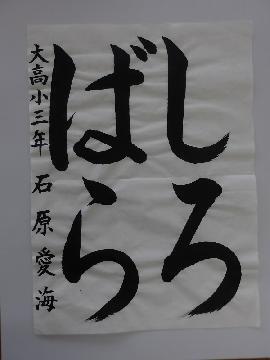 しろ
ばら
大高小三年 石原愛海